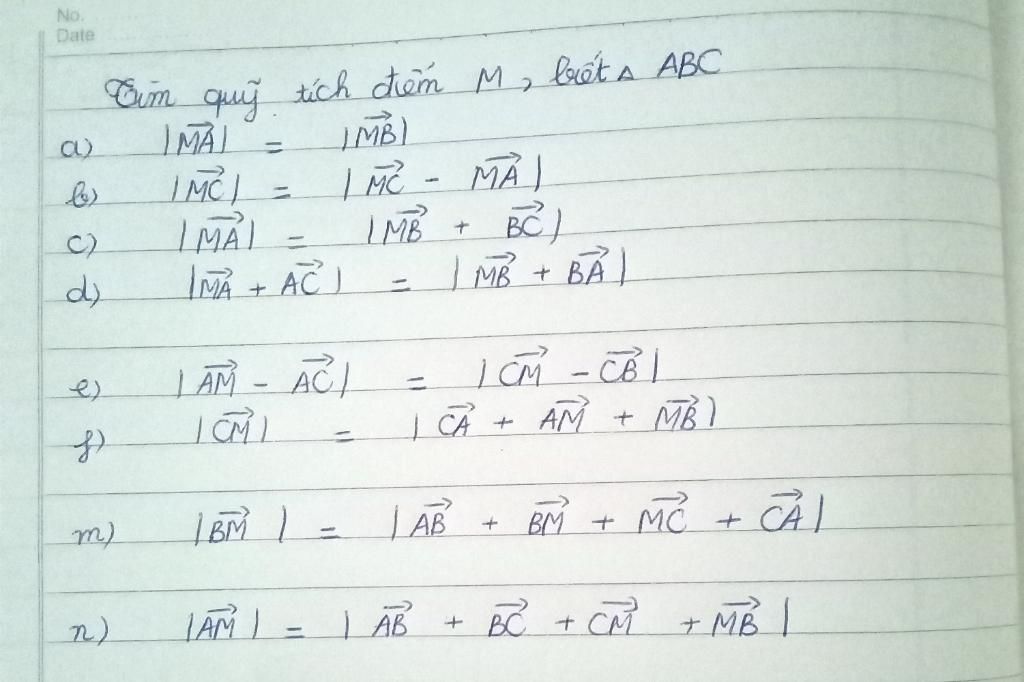 No.
Date
Tìm quỹ tích điểm M, biết △ ABC
a) |\overrightarrow{MA}| = |\overrightarrow{MB}|
b) |\overrightarrow{MC}| = |\overrightarrow{MC} - \overrightarrow{MA}|
c) |\overrightarrow{MA}| = |\overrightarrow{MB} + \overrightarrow{BC}|
d) |\overrightarrow{MA} + \overrightarrow{AC}| = |\overrightarrow{MB} + \overrightarrow{BA}|
e) |\overrightarrow{AM} - \overrightarrow{AC}| = |\overrightarrow{CM} - \overrightarrow{CB}|
f) |\overrightarrow{CM}| = |\overrightarrow{CA} + \overrightarrow{AM} + \overrightarrow{MB}|
m) |\overrightarrow{BM}| = |\overrightarrow{AB} + \overrightarrow{BM} + \overrightarrow{MC} + \overrightarrow{CA}|
n) |\overrightarrow{AM}| = |\overrightarrow{AB} + \overrightarrow{BC} + \overrightarrow{CM} + \overrightarrow{MB}|